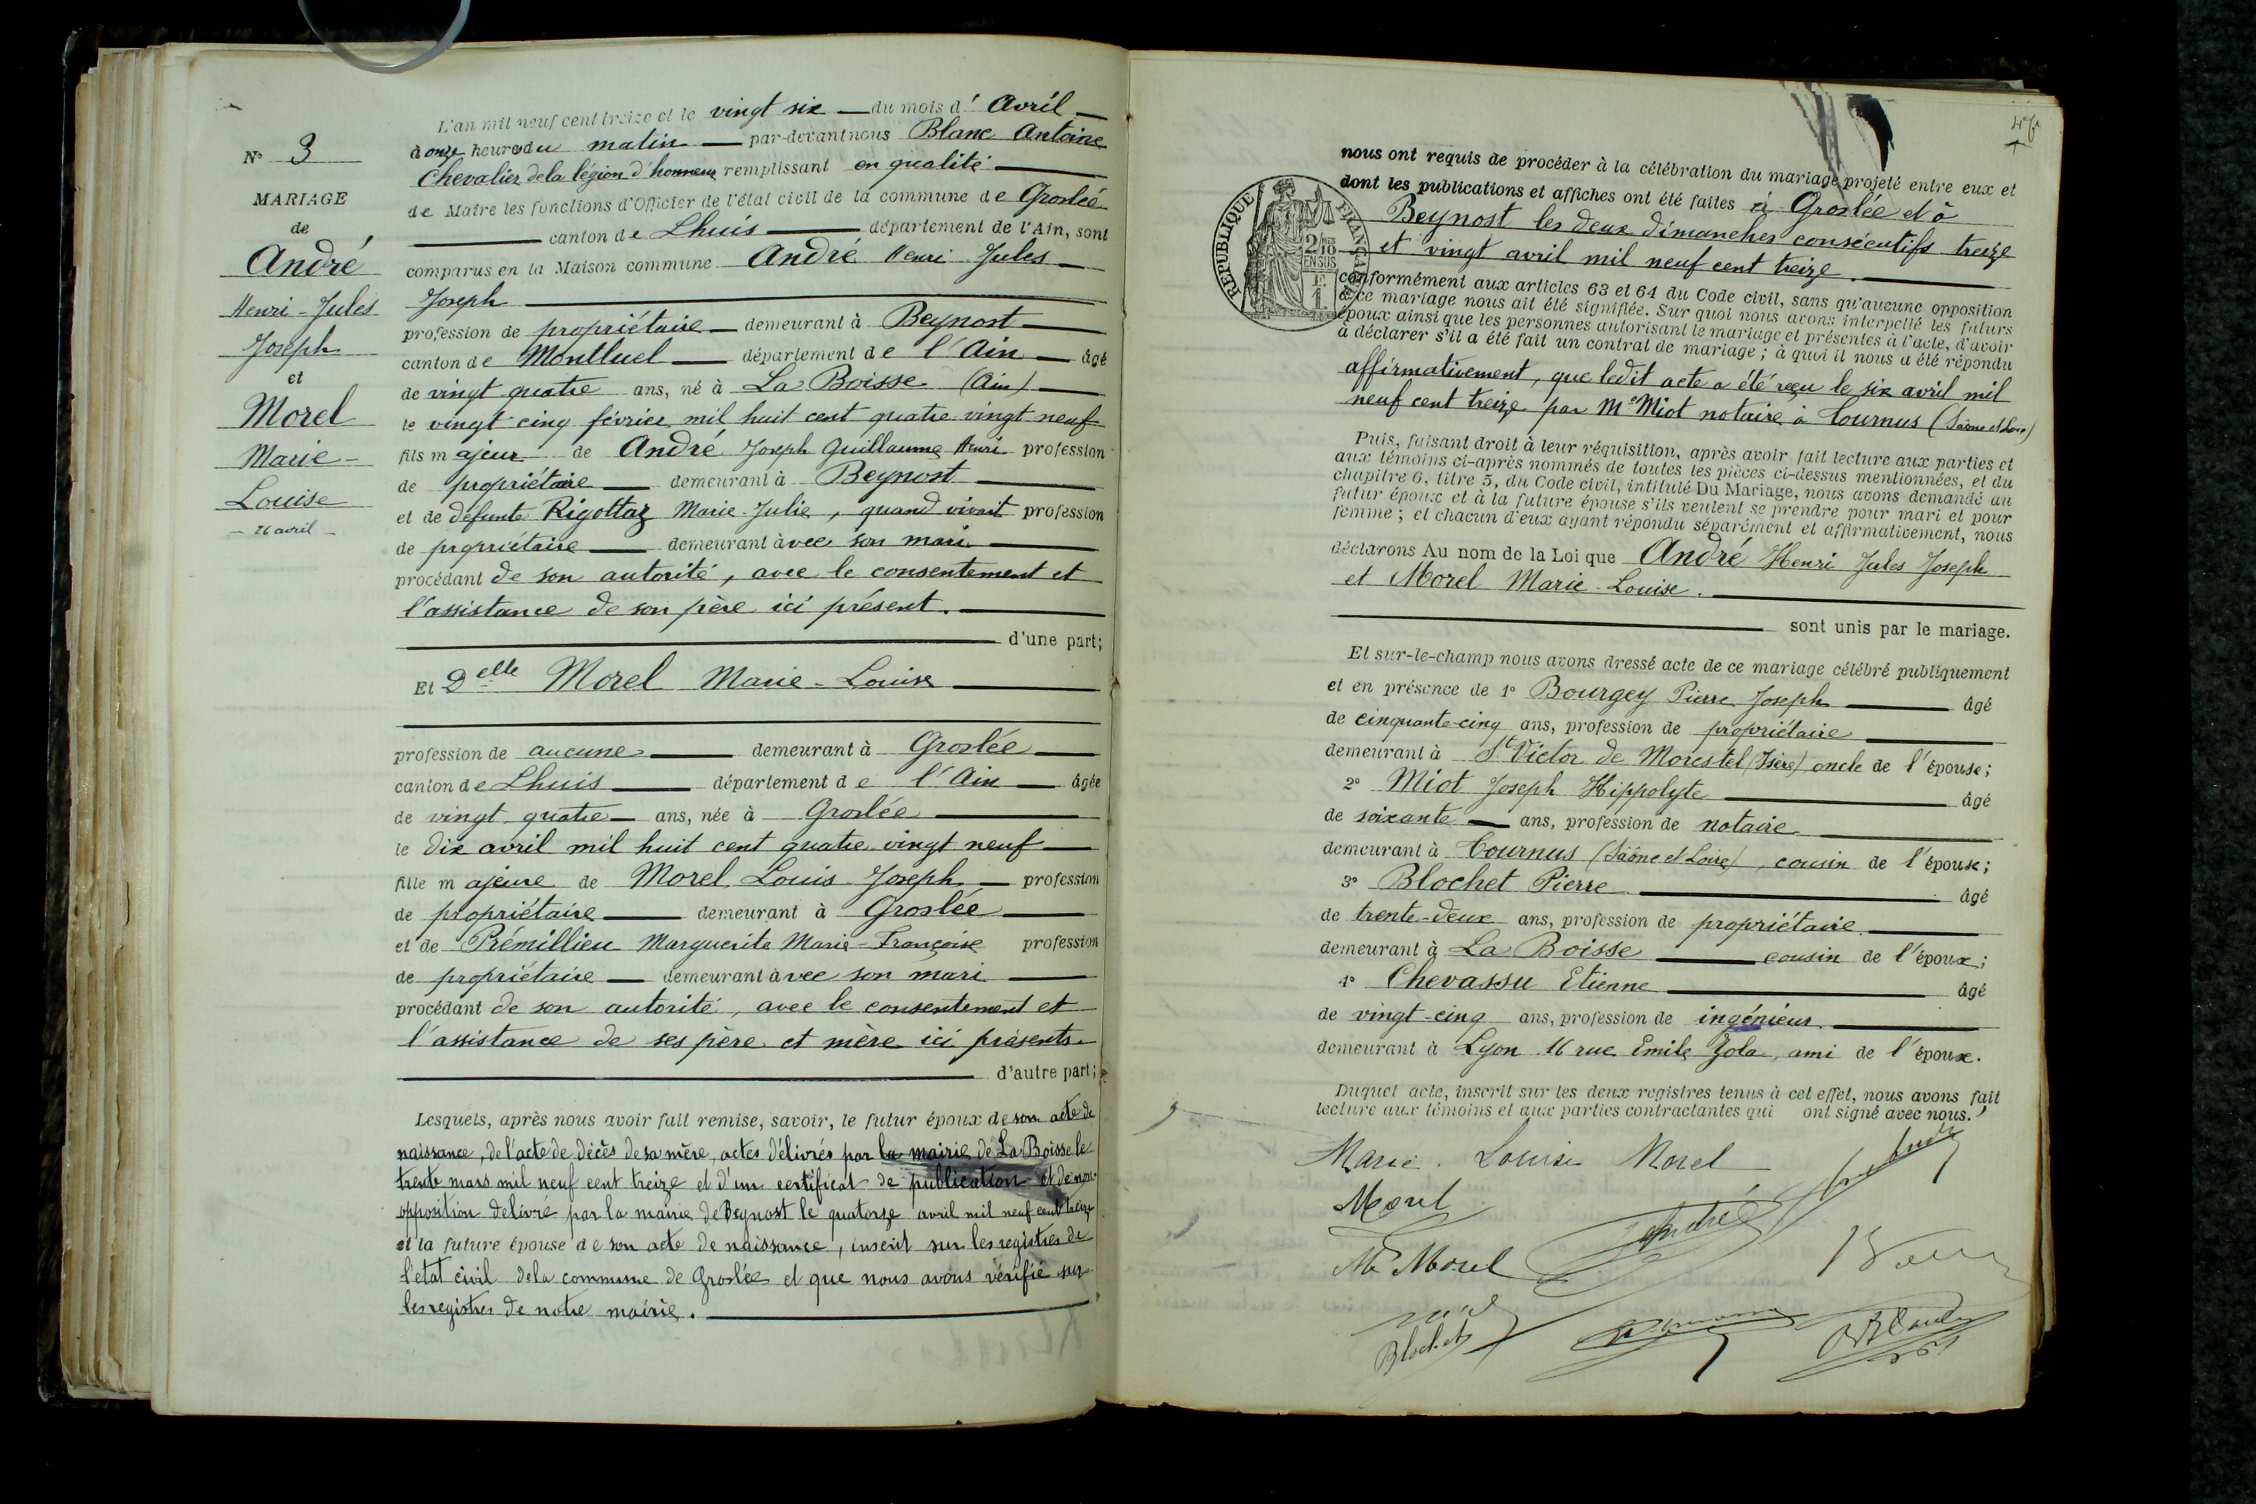 N° 3
MARIAGE
de
André
Henri-Jules
Joseph
et
Morel
Marie-
Louise
- 26 avril -
L'an mil neuf cent treize et le vingt six du mois d' Avril
à onze heures du matin par-devant nous Blanc Antoine
Chevalier de la légion d'honneur remplissant en qualité
de Maire les fonctions d'Officier de l'état civil de la commune de Groslée
canton de Lhuis département de l'Ain, sont
comparus en la Maison commune André Henri Jules
Joseph
profession de propriétaire demeurant à Beynost
canton de Montluel département de l'Ain âgé
de vingt quatre ans, né à La Boisse (Ain)
le vingt-cinq février mil huit cent quatre vingt neuf
fils majeur de André Joseph Guillaume Henri profession
de propriétaire demeurant à Beynost
et de défunte Rigottaz Marie-Julie, quand vivait profession
de propriétaire demeurant avec son mari
procédant de son autorité, avec le consentement et
l'assistance de son père ici présent.
d'une part;
Et Delle Morel Marie-Louise
profession de aucune demeurant à Groslée
canton de Lhuis département de l'Ain âgée
de vingt quatre ans, née à Groslée
le dix avril mil huit cent quatre vingt neuf
fille majeure de Morel Louis Joseph profession
de propriétaire demeurant à Groslée
et de Prémillieu Marguerite Marie-Françoise profession
de propriétaire demeurant avec son mari
procédant de son autorité, avec le consentement et
l'assistance de ses père et mère ici présents
d'autre part;
Lesquels, après nous avoir fait remise, savoir, le futur époux de son acte de
naissance, de l'acte de décès de sa mère, actes délivrés par la mairie de La Boisse le
trente mars mil neuf cent treize et d'un certificat de publication et de non-
opposition délivré par la mairie de Beynost le quatorze avril mil neuf cent treize
et la future épouse de son acte de naissance, inscrit sur les registres de
l'état civil de la commune de Groslée et que nous avons vérifié sur
les registres de notre mairie.
nous ont requis de procéder à la célébration du mariage projeté entre eux et
dont les publications et affiches ont été faites à Groslée et à
Beynost les deux dimanches consécutifs treize
et vingt avril mil neuf cent treize.
conformément aux articles 63 et 64 du Code civil, sans qu'aucune opposition
à ce mariage nous ait été signifiée. Sur quoi nous avons interpellé les futurs
époux ainsi que les personnes autorisant le mariage et présentes à l'acte, d'avoir
à déclarer s'il a été fait un contrat de mariage; à quoi il nous a été répondu
affirmativement, que ledit acte a été reçu le six avril mil
neuf cent treize par Me Miot notaire à Tournus (Saône et Loire)
Puis, faisant droit à leur réquisition, après avoir fait lecture aux parties et
aux témoins ci-après nommés de toutes les pièces ci-dessus mentionnées, et du
chapitre 6, titre 5, du Code civil, intitulé Du Mariage, nous avons demandé au
futur époux et à la future épouse s'ils veulent se prendre pour mari et pour
femme; et chacun d'eux ayant répondu séparément et affirmativement, nous
déclarons Au nom de la Loi que André Henri Jules Joseph
et Morel Marie-Louise.
sont unis par le mariage.
Et sur-le-champ nous avons dressé acte de ce mariage célébré publiquement
et en présence de 1° Bourgey Pierre Joseph âgé
de cinquante-cinq ans, profession de propriétaire
demeurant à St Victor de Morestel (Isère) oncle de l'épouse;
2° Miot Joseph Hippolyte âgé
de soixante ans, profession de notaire
demeurant à Tournus (Saône et Loire), cousin de l'épouse;
3° Blochet Pierre âgé
de trente-deux ans, profession de propriétaire
demeurant à La Boisse cousin de l'époux;
4° Chevassu Etienne âgé
de vingt-cinq ans, profession de ingénieur
demeurant à Lyon 16 rue Emile Zola, ami de l'époux.
Duquel acte, inscrit sur les deux registres tenus à cet effet, nous avons fait
lecture aux témoins et aux parties contractantes qui ont signé avec nous.
Marie Louise Morel
Morel
André
M Morel
Blochet
REPUBLIQUE FRANÇAISE
2/10
EN SUS
1 F.